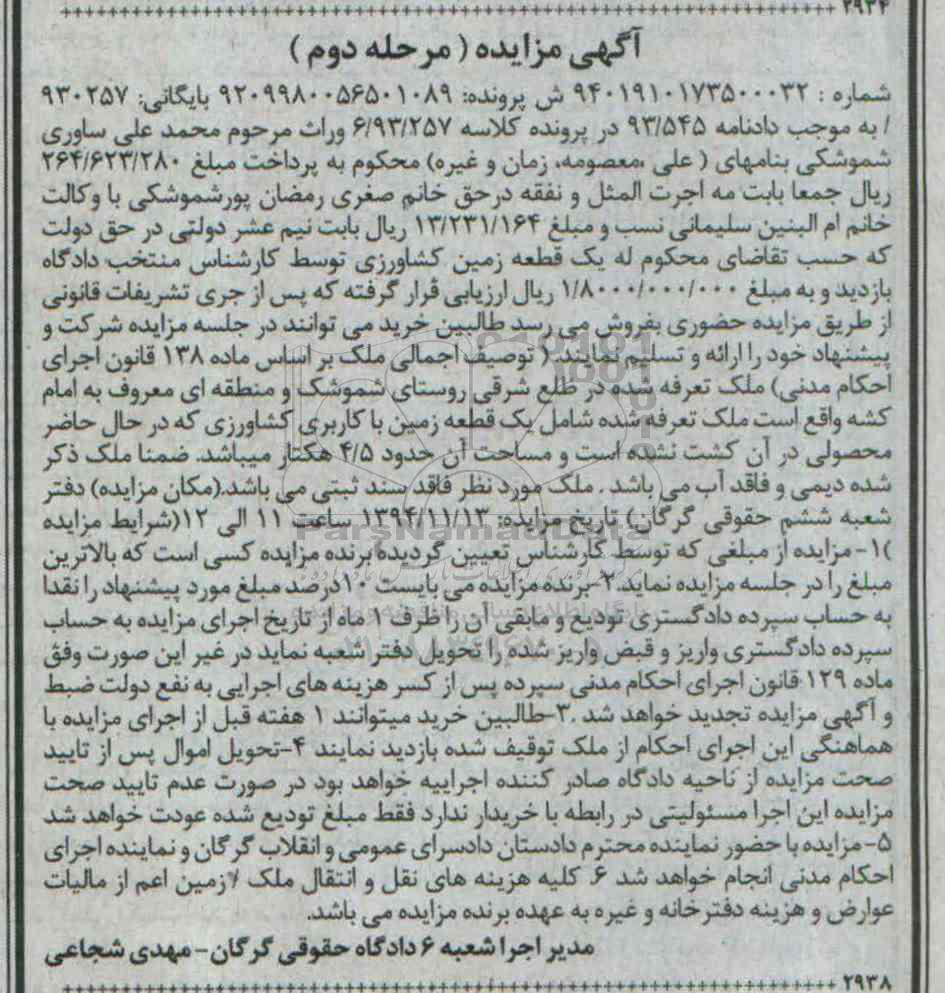 ۲۹۳۴
آگهی مزایده ( مرحله دوم )
شماره : ۹۴۰۱۹۱۰۱۷۳۵۰۰۰۳۲ ش پرونده: ۹۲۰۹۹۸۰۰۵۶۵۰۱۰۸۹ بایگانی: ۹۳۰۲۵۷
/ به موجب دادنامه ۹۳/۵۴۵ در پرونده کلاسه ۶/۹۳/۲۵۷ وراث مرحوم محمد علی ساوری
شموشکی بنامهای ( علی ،معصومه، زمان و غیره) محکوم به پرداخت مبلغ ۲۶۴/۶۲۳/۲۸۰
ریال جمعا بابت مه اجرت المثل و نفقه درحق خانم صغری رمضان پورشموشکی با وکالت
خانم ام البنین سلیمانی نسب و مبلغ ۱۳/۲۳۱/۱۶۴ ریال بابت نیم عشر دولتی در حق دولت
که حسب تقاضای محکوم له یک قطعه زمین کشاورزی توسط کارشناس منتخب دادگاه
بازدید و به مبلغ ۱/۸۰۰۰/۰۰۰/۰۰۰ ریال ارزیابی قرار گرفته که پس از جری تشریفات قانونی
از طریق مزایده حضوری بفروش می رسد طالبین خرید می توانند در جلسه مزایده شرکت و
پیشنهاد خود را ارائه و تسلیم نمایند. ( توصیف اجمالی ملک بر اساس ماده ۱۳۸ قانون اجرای
احکام مدنی) ملک تعرفه شده در ظلع شرقی روستای شموشک و منطقه ای معروف به امام
کشه واقع است ملک تعرفه شده شامل یک قطعه زمین با کاربری کشاورزی که در حال حاضر
محصولی در آن کشت نشده است و مساحت آن حدود ۴/۵ هکتار میباشد. ضمنا ملک ذکر
شده دیمی و فاقد آب می باشد . ملک مورد نظر فاقد سند ثبتی می باشد.(مکان مزایده) دفتر
شعبه ششم حقوقی گرگان) تاریخ مزایده: ۱۳۹۴/۱۱/۱۳ ساعت ۱۱ الی ۱۲(شرایط مزایده
)۱- مزایده از مبلغی که توسط کارشناس تعیین گردیده برنده مزایده کسی است که بالاترین
مبلغ را در جلسه مزایده نماید.۲-برنده مزایده می بایست ۱۰درصد مبلغ مورد پیشنهاد را نقدا
به حساب سپرده دادگستری تودیع و مابقی آن را ظرف ۱ ماه از تاریخ اجرای مزایده به حساب
سپرده دادگستری واریز و قبض واریز شده را تحویل دفتر شعبه نماید در غیر این صورت وفق
ماده ۱۲۹ قانون اجرای احکام مدنی سپرده پس از کسر هزینه های اجرایی به نفع دولت ضبط
و آگهی مزایده تجدید خواهد شد .۳-طالبین خرید میتوانند ۱ هفته قبل از اجرای مزایده با
هماهنگی این اجرای احکام از ملک توقیف شده بازدید نمایند ۴-تحویل اموال پس از تایید
صحت مزایده از ناحیه دادگاه صادر کننده اجراییه خواهد بود در صورت عدم تایید صحت
مزایده این اجرا مسئولیتی در رابطه با خریدار ندارد فقط مبلغ تودیع شده عودت خواهد شد
۵- مزایده با حضور نماینده محترم دادستان دادسرای عمومی و انقلاب گرگان و نماینده اجرای
احکام مدنی انجام خواهد شد ۶. کلیه هزینه های نقل و انتقال ملک /زمین اعم از مالیات
عوارض و هزینه دفترخانه و غیره به عهده برنده مزایده می باشد.
مدیر اجرا شعبه ۶ دادگاه حقوقی گرگان - مهدی شجاعی
۲۹۳۸
ParsNamadData